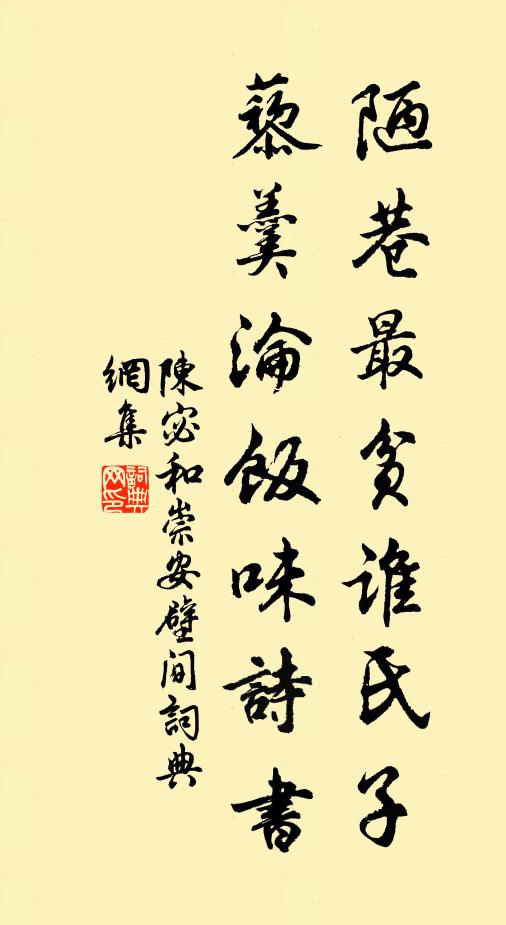 陋巷最貧誰氏子
藜羹淪飯味詩書
陳宓和崇安壁間詞典
網集
詞典網印